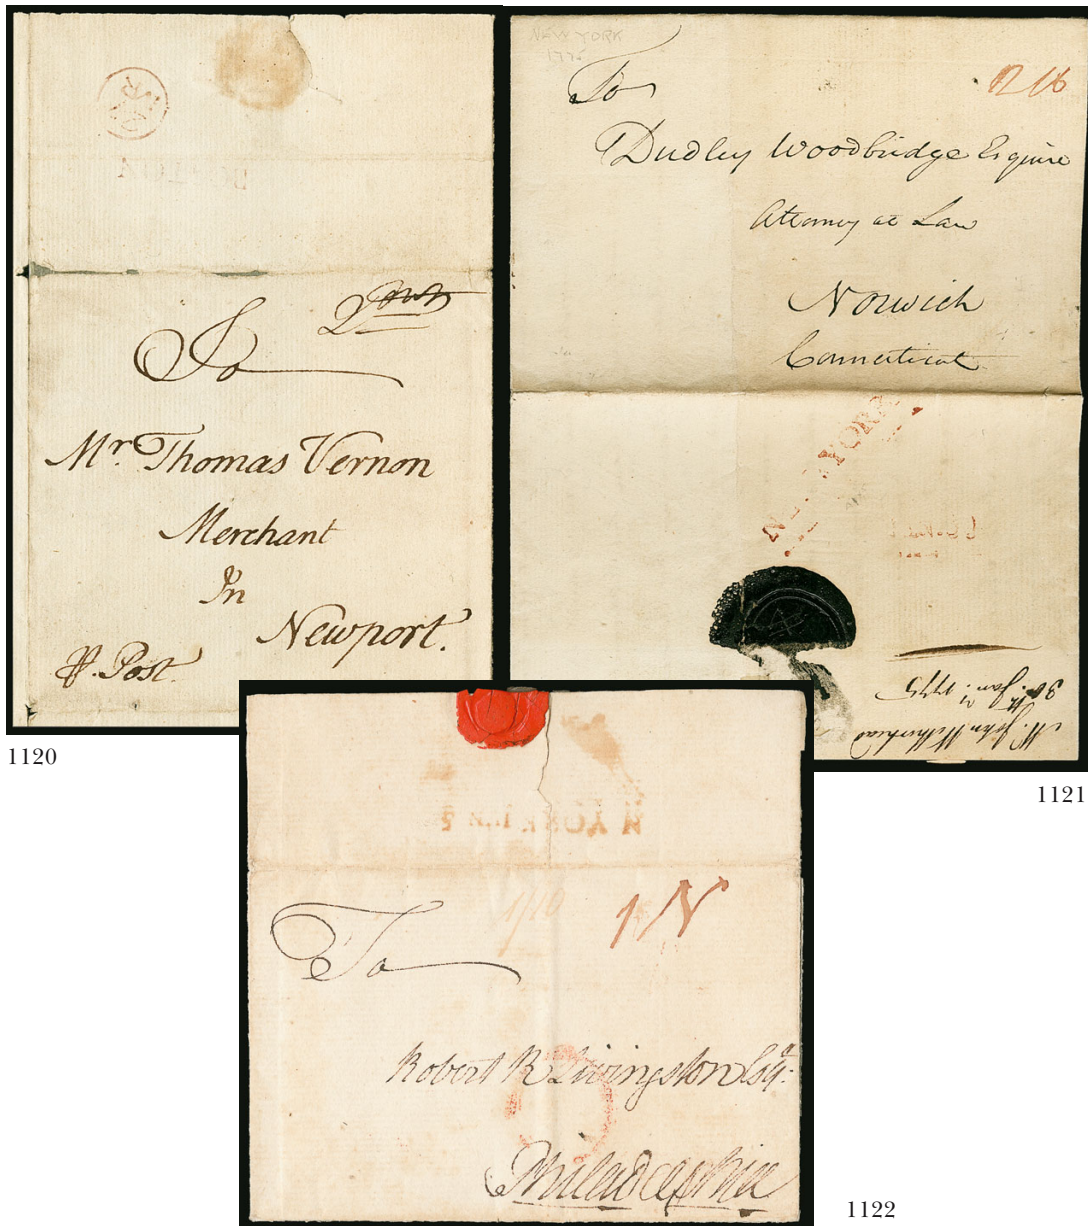 BOSTON
2
To
Mr. Thomas Vernon
Merchant
In
Newport.
P. Post.
1120
NEW YORK
1775
To
Dudley Woodbridge Esquire
Attorney at Law
Norwich
Connecticut
NEW YORK
Mr. John Wetherhead
30th. Jan. 1775
1121
N YORK
To
1/10
1 N
Robert R Livingston Esqr.
Philadelphia
1122